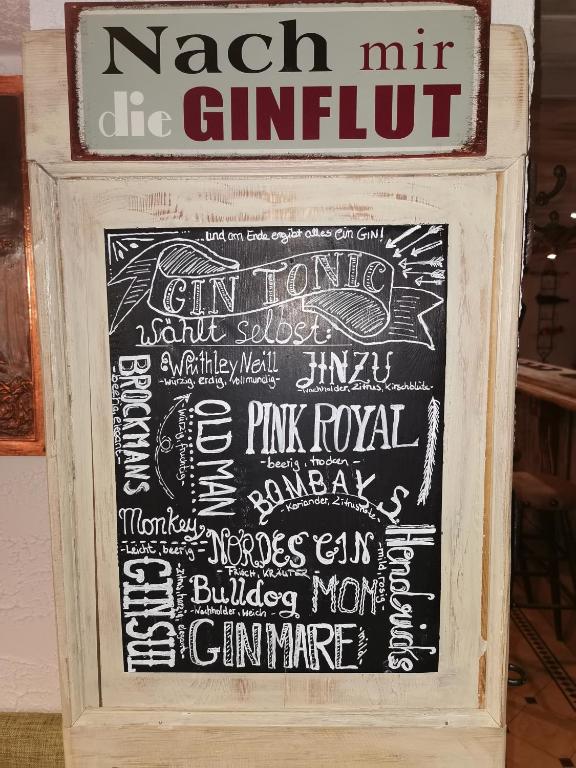 Nach mir
die GINFLUT
...und am Ende ergibt alles Ein GIN!
GIN TONIC
Wählt selbst:
Whithley Neill
-würzig, erdig, vollmundig-
JINZU
-wachholder, Zitrus, Kirschblüte-
BROCKMANS
-beerig, elegant-
OLD MAN
-würzig, fruchtig-
PINK ROYAL
-beerig, trocken-
BOMBAY
-Koriander, Zitrusnote-
Monkey
-Leicht, beerig-
NORDES GIN
FRISCH, KRÄUTER
Hendricks
-mild rosig-
GIN SUL
Bulldog
-Wachholder, weich-
MOM
GIN MARE